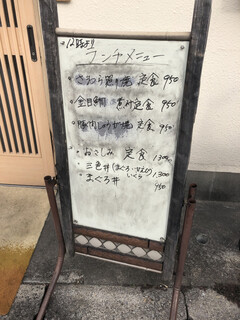 12時より
ランチメニュー
・さわら照り焼 定食 950
・金目鯛 煮み定食 950
・豚肉しょうが焼 定食 950
・おさしみ 定食 1300
・三色丼(まぐろ・サーモン いくら) 1300
・まぐろ丼 950